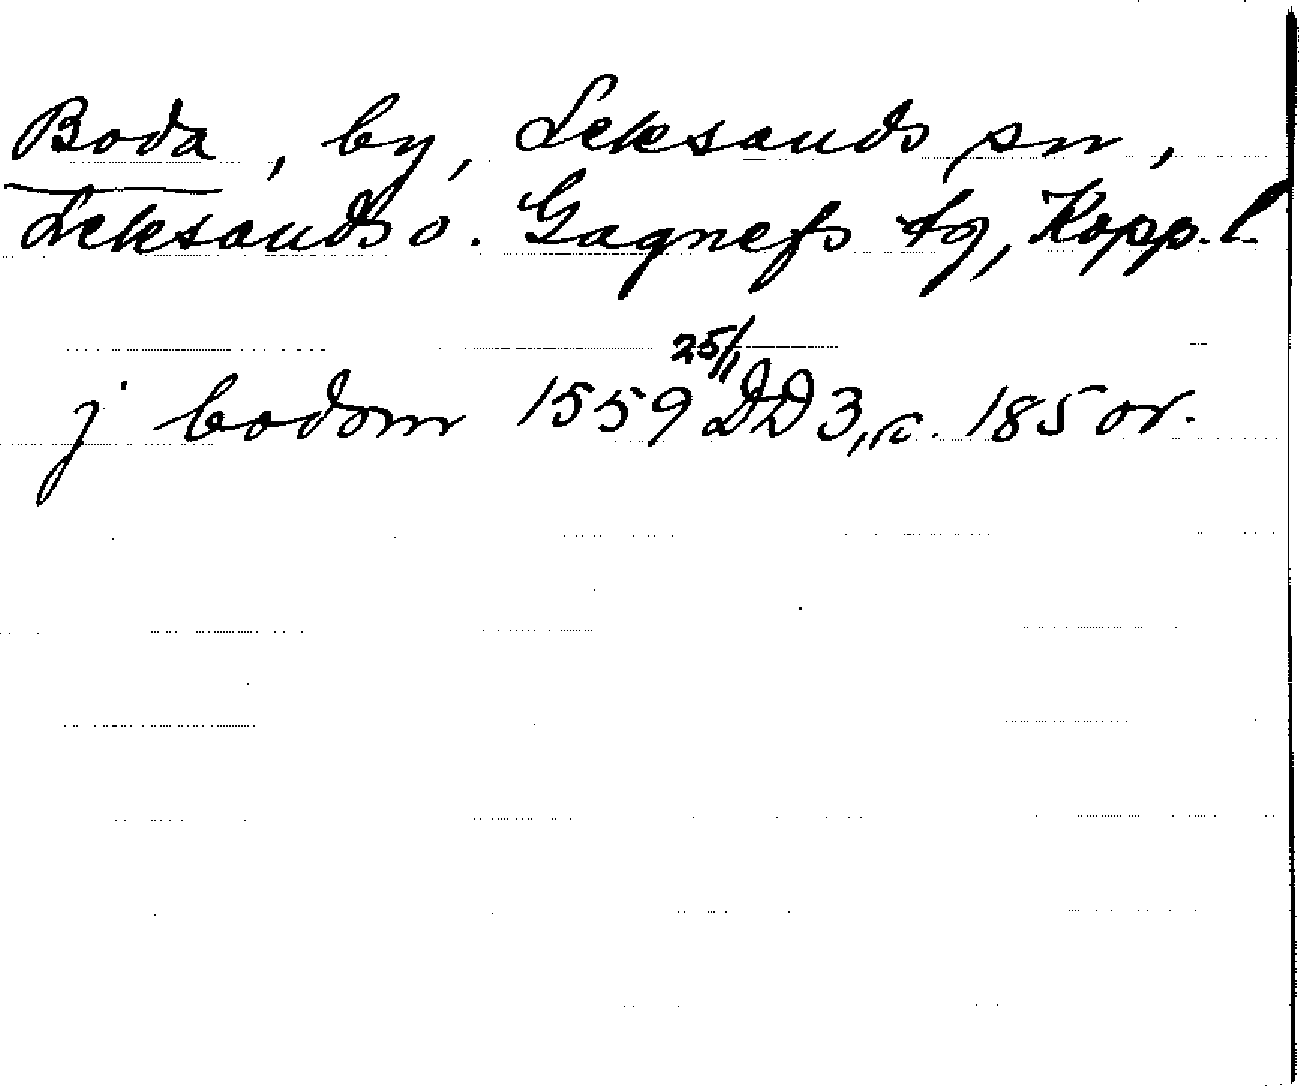 Boda, by, Leksands sn,
Leksands o. Gagnefs tg, Kopp. l.
j bodom 1559 25/11 DD 3, nr. 185 or.